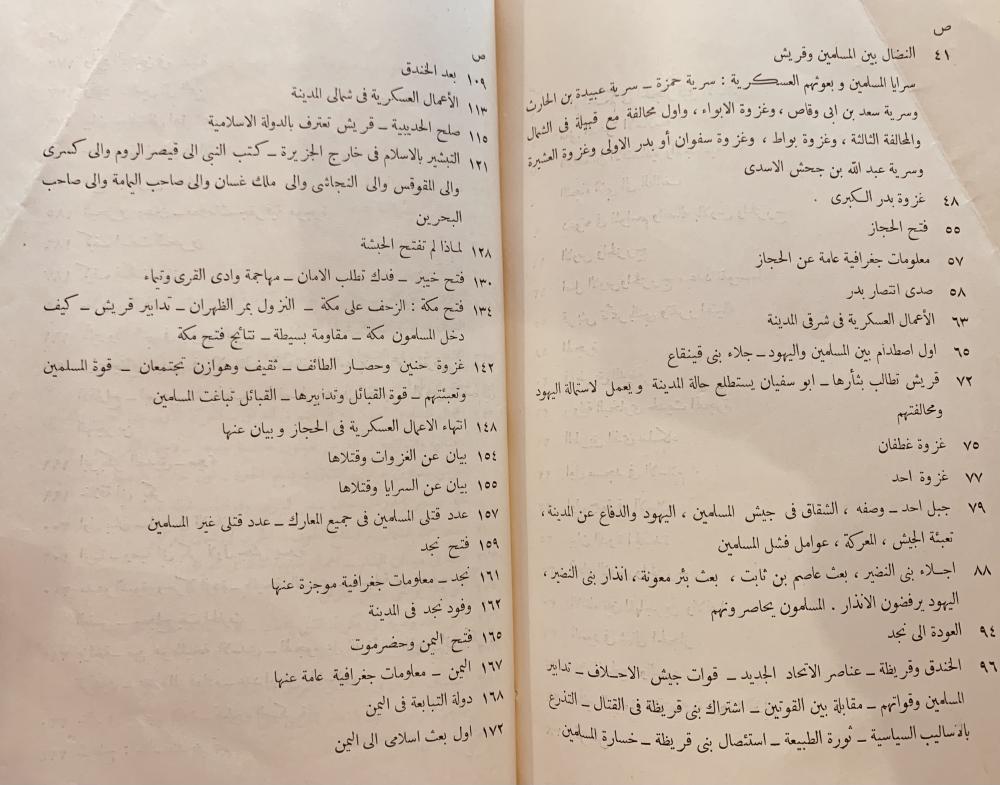 ص
٤١ النضال بين المسلمين وقريش
سرايا المسلمين وبعوثهم العسكرية : سرية حمزة ــ سرية عبيدة بن الحارث
وسرية سعد بن ابى وقاص ، وغزوة الابواء ، واول محالفة مع قبيلة فى الشمال
والمحالفة الثالثة ، وغزوة بواط ، وغزوة سفوان أو بدر الاولى وغزوة العشيرة
وسرية عبد الله بن جحش الاسدى
٤٨ غزوة بدر الكبرى .
٥٥ فتح الحجاز
٥٧ معلومات جغرافية عامة عن الحجاز
٥٨ صدى انتصار بدر
٦٣ الأعمال العسكرية فى شرقى المدينة
٦٥ اول اصطدام بين المسلمين واليهود ــ جلاء بنى قينقاع
٧٢ قريش تطالب بثأرها ــ ابو سفيان يستطلع حالة المدينة ويعمل لاستمالة اليهود
ومحالفتهم
٧٥ غزوة غطفان
٧٧ غزوة احد
٧٩ جبل احد ــ وصفه ، الشقاق فى جيش المسلمين ، اليهود والدفاع عن المدينة ،
تعبئة الجيش ، المعركة ، عوامل فشل المسلمين
٨٨ اجلاء بنى النضير ، بعث عاصم بن ثابت ، بعث بئر معونة ، انذار بنى النضير ،
اليهود يرفضون الانذار . المسلمون يحاصرونهم
٩٤ العودة الى نجد
٩٦ الخندق وقريظة ــ عناصر الاتحاد الجديد ــ قوات جيش الاحلاف ــ تدابير
المسلمين وقواتهم ــ مقابلة بين القوتين ــ اشتراك بنى قريظة فى القتال ــ التذرع
بالأساليب السياسية ــ ثورة الطبيعة ــ استئصال بنى قريظة ــ خسارة المسلمين
ص
١٠٩ بعد الخندق
١١٣ الأعمال العسكرية فى شمالى المدينة
١١٥ صلح الحديبية ــ قريش تعترف بالدولة الاسلامية
١٢١ التبشير بالاسلام فى خارج الجزيرة ــ كتب النبى الى قيصر الروم والى كسرى
والى المقوقس والى النجاشى والى ملك غسان والى صاحب اليمامة والى صاحب
البحرين
١٢٨ لماذا لم تفتح الحبشة
١٣٠ فتح خيبر ــ فدك تطلب الامان ــ مهاجمة وادى القرى وتيماء
١٣٤ فتح مكة : الزحف على مكة ــ النزول بمر الظهران ــ تدابير قريش ــ كيف
دخل المسلمون مكة ــ مقاومة بسيطة ــ نتائج فتح مكة
١٤٢ غزوة حنين وحصار الطائف ــ ثقيف وهوازن تجتمعان ــ قوة المسلمين
وتعبئتهم ــ قوة القبائل وتدابيرها ــ القبائل تباغت المسلمين
١٤٨ انتهاء الاعمال العسكرية فى الحجاز وبيان عنها
١٥٤ بيان عن الغزوات وقتلاها
١٥٥ بيان عن السرايا وقتلاها
١٥٧ عدد قتلى المسلمين فى جميع المعارك ــ عدد قتلى غير المسلمين
١٥٩ فتح نجد
١٦١ نجد ــ معلومات جغرافية موجزة عنها
١٦٢ وفود نجد فى المدينة
١٦٥ فتح اليمن وحضرموت
١٦٧ اليمن ــ معلومات جغرافية عامة عنها
١٦٨ دولة التبابعة فى اليمن
١٧٢ اول بعث اسلامى الى اليمن